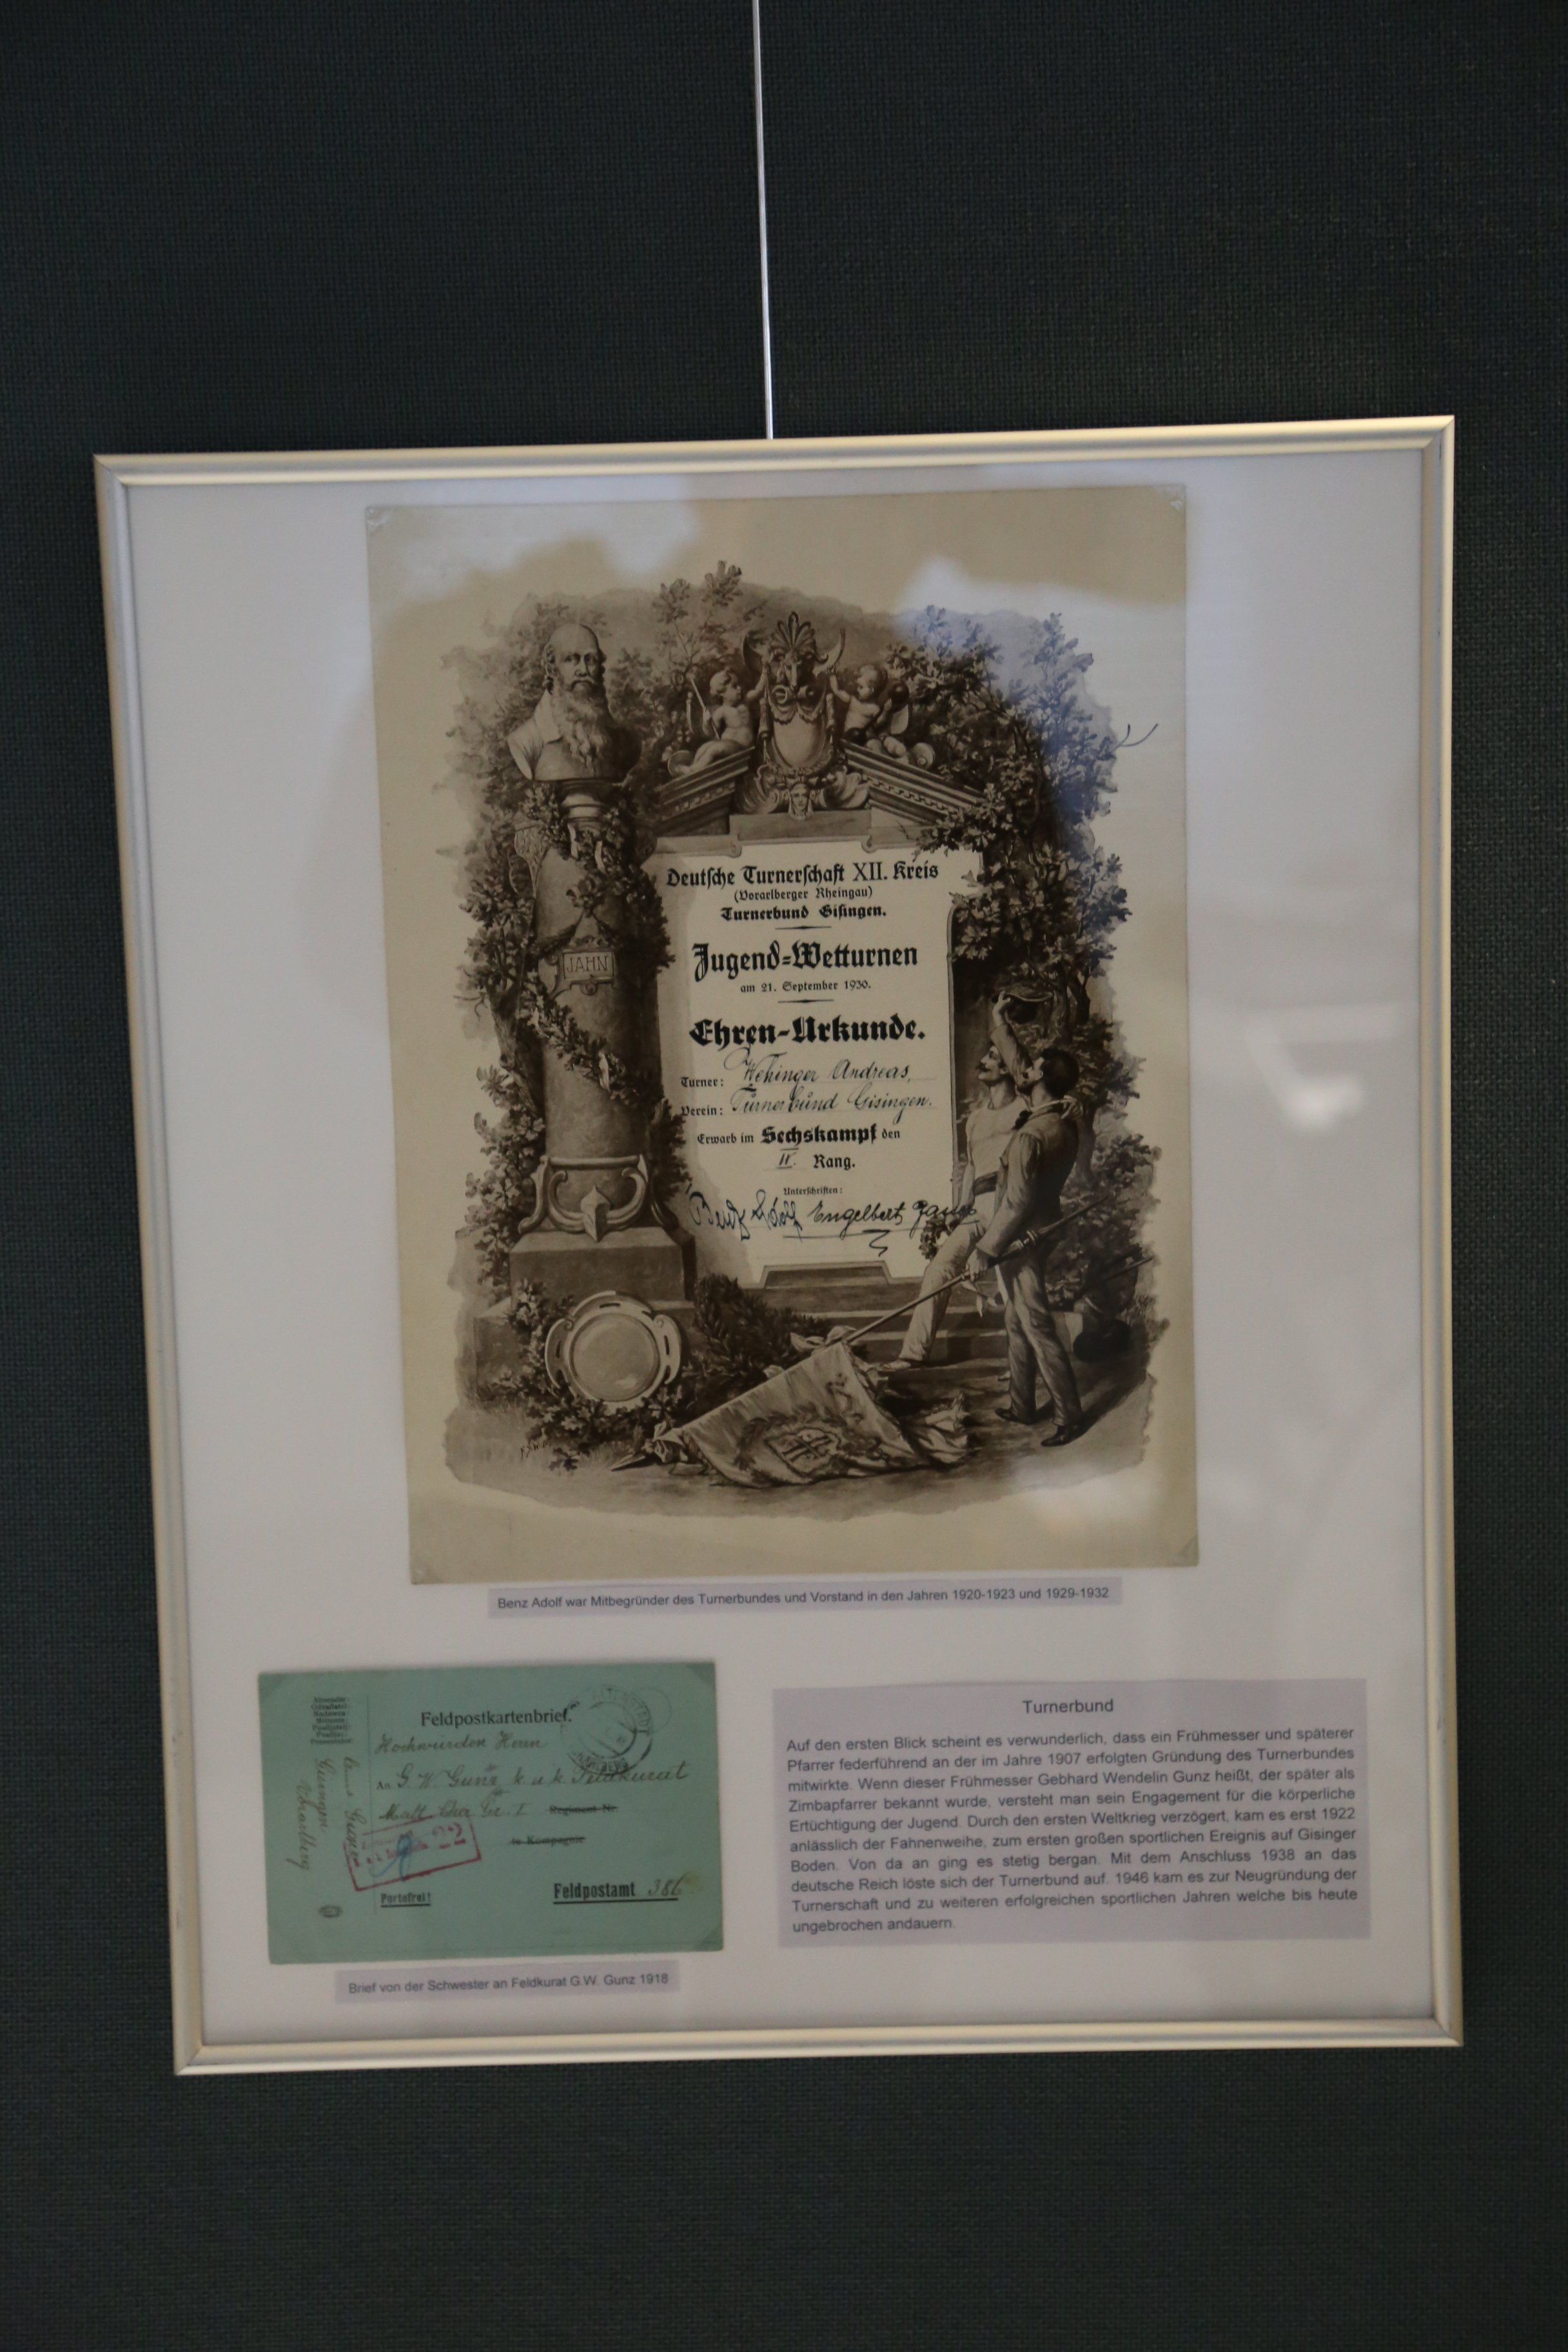 JAHN
Deutsche Turnerschaft XII. Kreis
(Vorarlberger Rheingau)
Turnerbund Gisingen.
Jugend=Wetturnen
am 21. September 1930.
Ehren-Urkunde.
Turner: Andreas,
Verein: Turnerbund Gisingen.
Erwarb im Sechskampf den
II. Rang.
Unterschriften:
Benz Adolf Engelbert
Benz Adolf war Mitbegründer des Turnerbundes und Vorstand in den Jahren 1920-1923 und 1929-1932
Feldpostkartenbrief.
Hochwürden Herrn
An G. W. Gunz, k. u. k. Feldkurat
Regiment Nr.
te Kompagnie
Portofrei!
Feldpostamt 386
Gisingen
Vorarlberg
Brief von der Schwester an Feldkurat G.W. Gunz 1918
Turnerbund
Auf den ersten Blick scheint es verwunderlich, dass ein Frühmesser und späterer
Pfarrer federführend an der im Jahre 1907 erfolgten Gründung des Turnerbundes
mitwirkte. Wenn dieser Frühmesser Gebhard Wendelin Gunz heißt, der später als
Zimbapfarrer bekannt wurde, versteht man sein Engagement für die körperliche
Ertüchtigung der Jugend. Durch den ersten Weltkrieg verzögert, kam es erst 1922
anlässlich der Fahnenweihe, zum ersten großen sportlichen Ereignis auf Gisinger
Boden. Von da an ging es stetig bergan. Mit dem Anschluss 1938 an das
deutsche Reich löste sich der Turnerbund auf. 1946 kam es zur Neugründung der
Turnerschaft und zu weiteren erfolgreichen sportlichen Jahren welche bis heute
ungebrochen andauern.